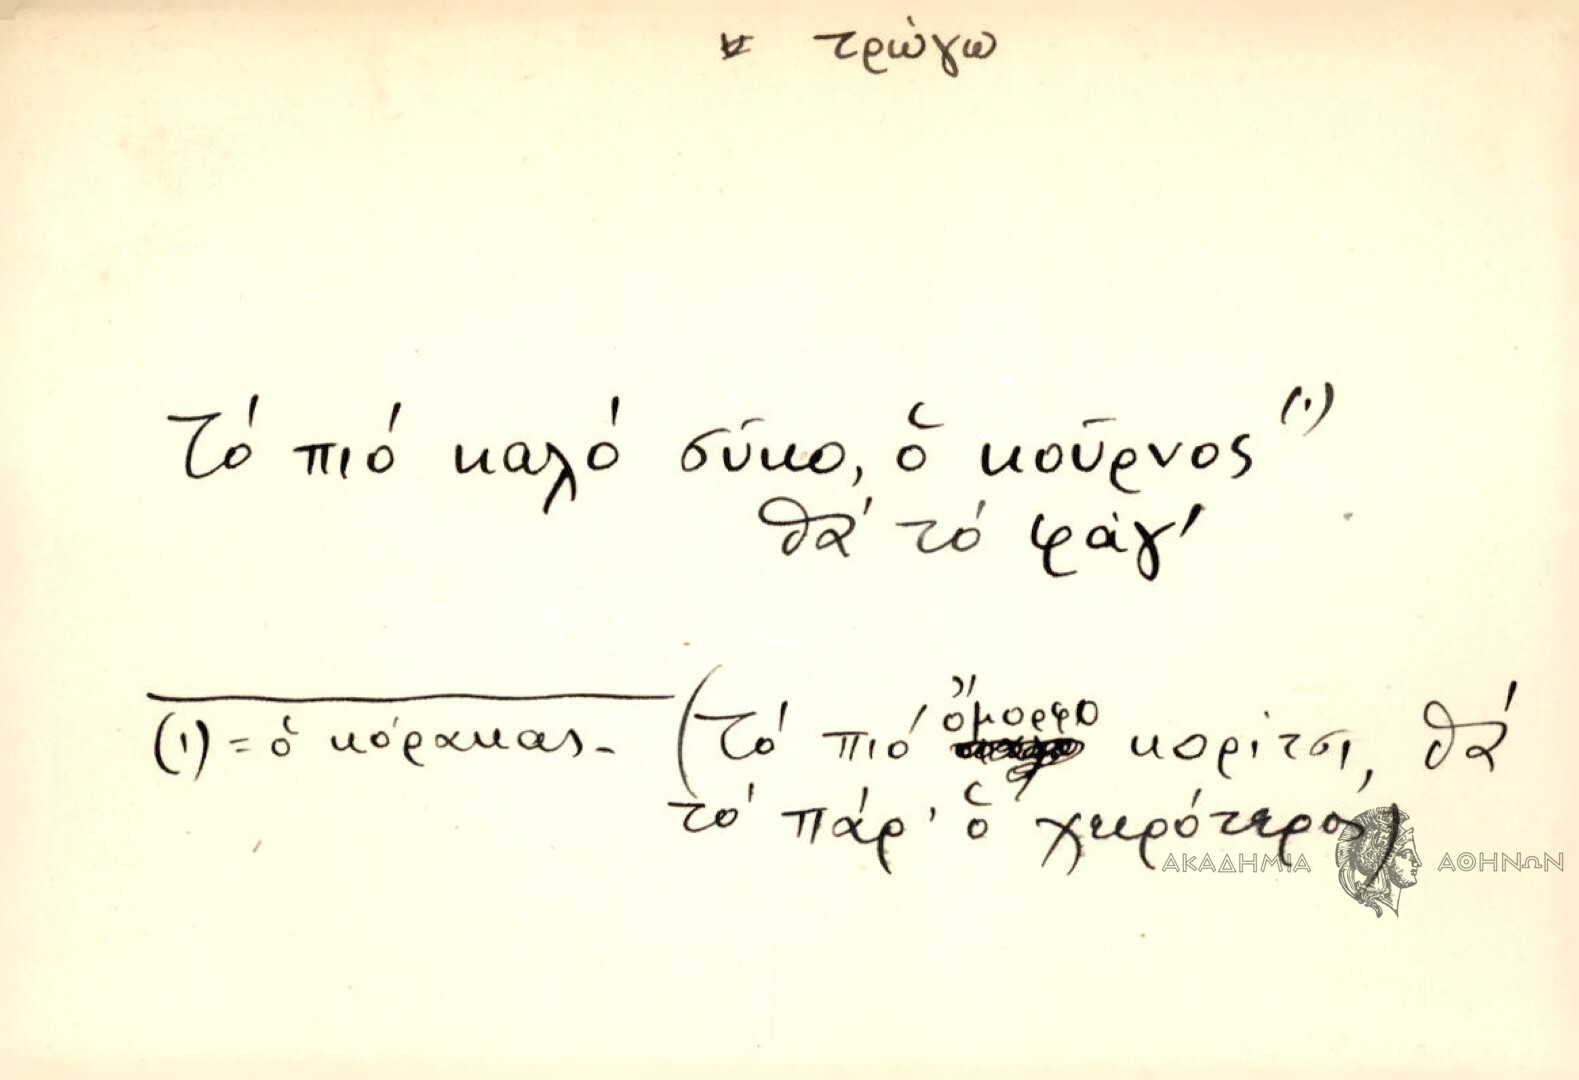 τρώγω
Τό πιό καλό σῦκο, ὁ κοῦρνος (1)
θά τό φάγ'
(1) = ὁ κόρακας - (Τό πιό ὄμορφο κορίτσι, θά
τό πάρ' ὁ χειρότερος)
ΑΚΑΔΗΜΙΑ ΑΘΗΝΩΝ